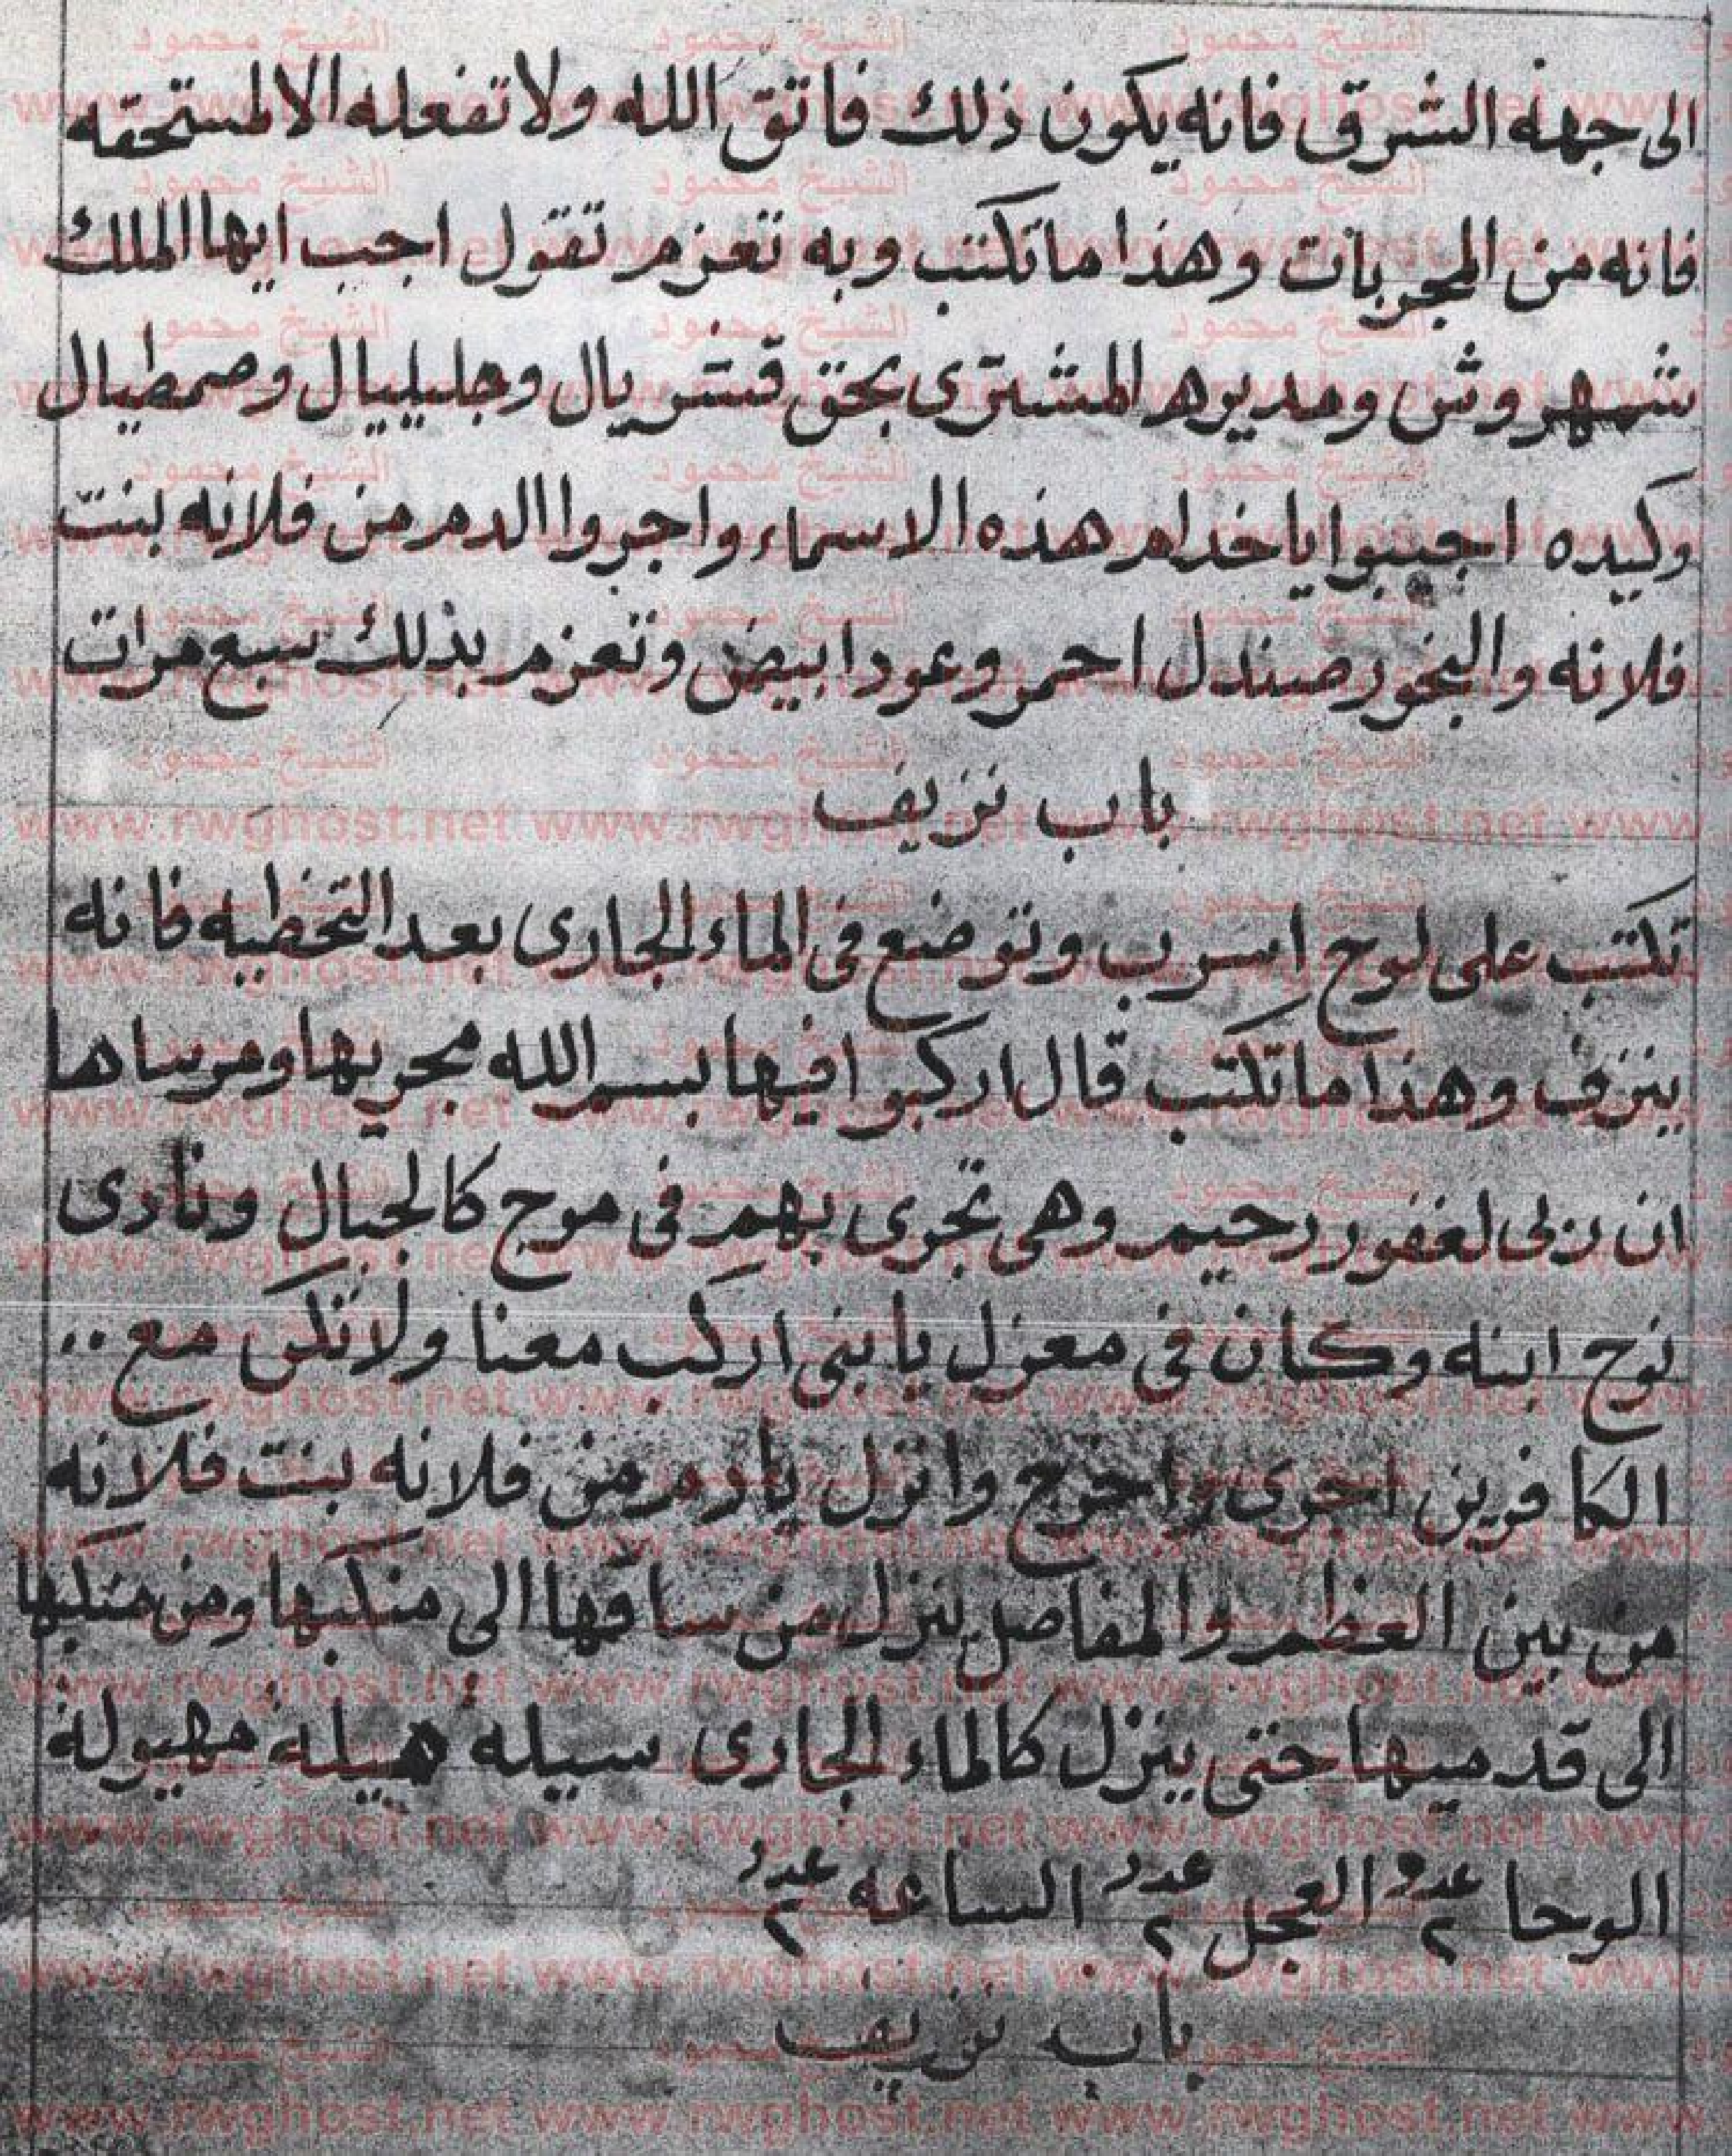 الى جهة الشرق فانه يكون ذلك فاتق الله ولا تفعله الا لمستحقه
فانه من المجربات وهذا ما تكتب وبه تعزم تقول اجب ايها الملك
شمهروش ومديره المشترى بحق قشريال وجليليال وصمطيال
وكيده اجيبوا يا خدام هذه الاسماء واجروا الدم من فلانه بنت
فلانه والبخور صندل احمر وعود ابيض وتعزم بذلك سبع مرات
باب نزيف
تكتب على لوح اسرب وتوضع فى الماء الجارى بعد التخطيه فانه
ينزف وهذا ما تكتب قال اركبوا فيها بسم الله مجريها ومرساها
ان ربى لغفور رحيم وهى تجرى بهم فى موج كالجبال ونادى
نوح ابنه وكان فى معزل يا بنى اركب معنا ولا تكن مع ..
الكافرين اجرى واخرج وانزل يا دم من فلانه بنت فلانه
من بين العظم والمفاصل ينزل من ساقها الى منكبها ومن منكبها
الى قدميها حتى ينزل كالماء الجارى سيله هيلة مهيولة
الوحا عدد ٢ العجل عدد ٢ الساعه عدد ٢
باب نزيف
الشيخ محمود
www.rwghost.net